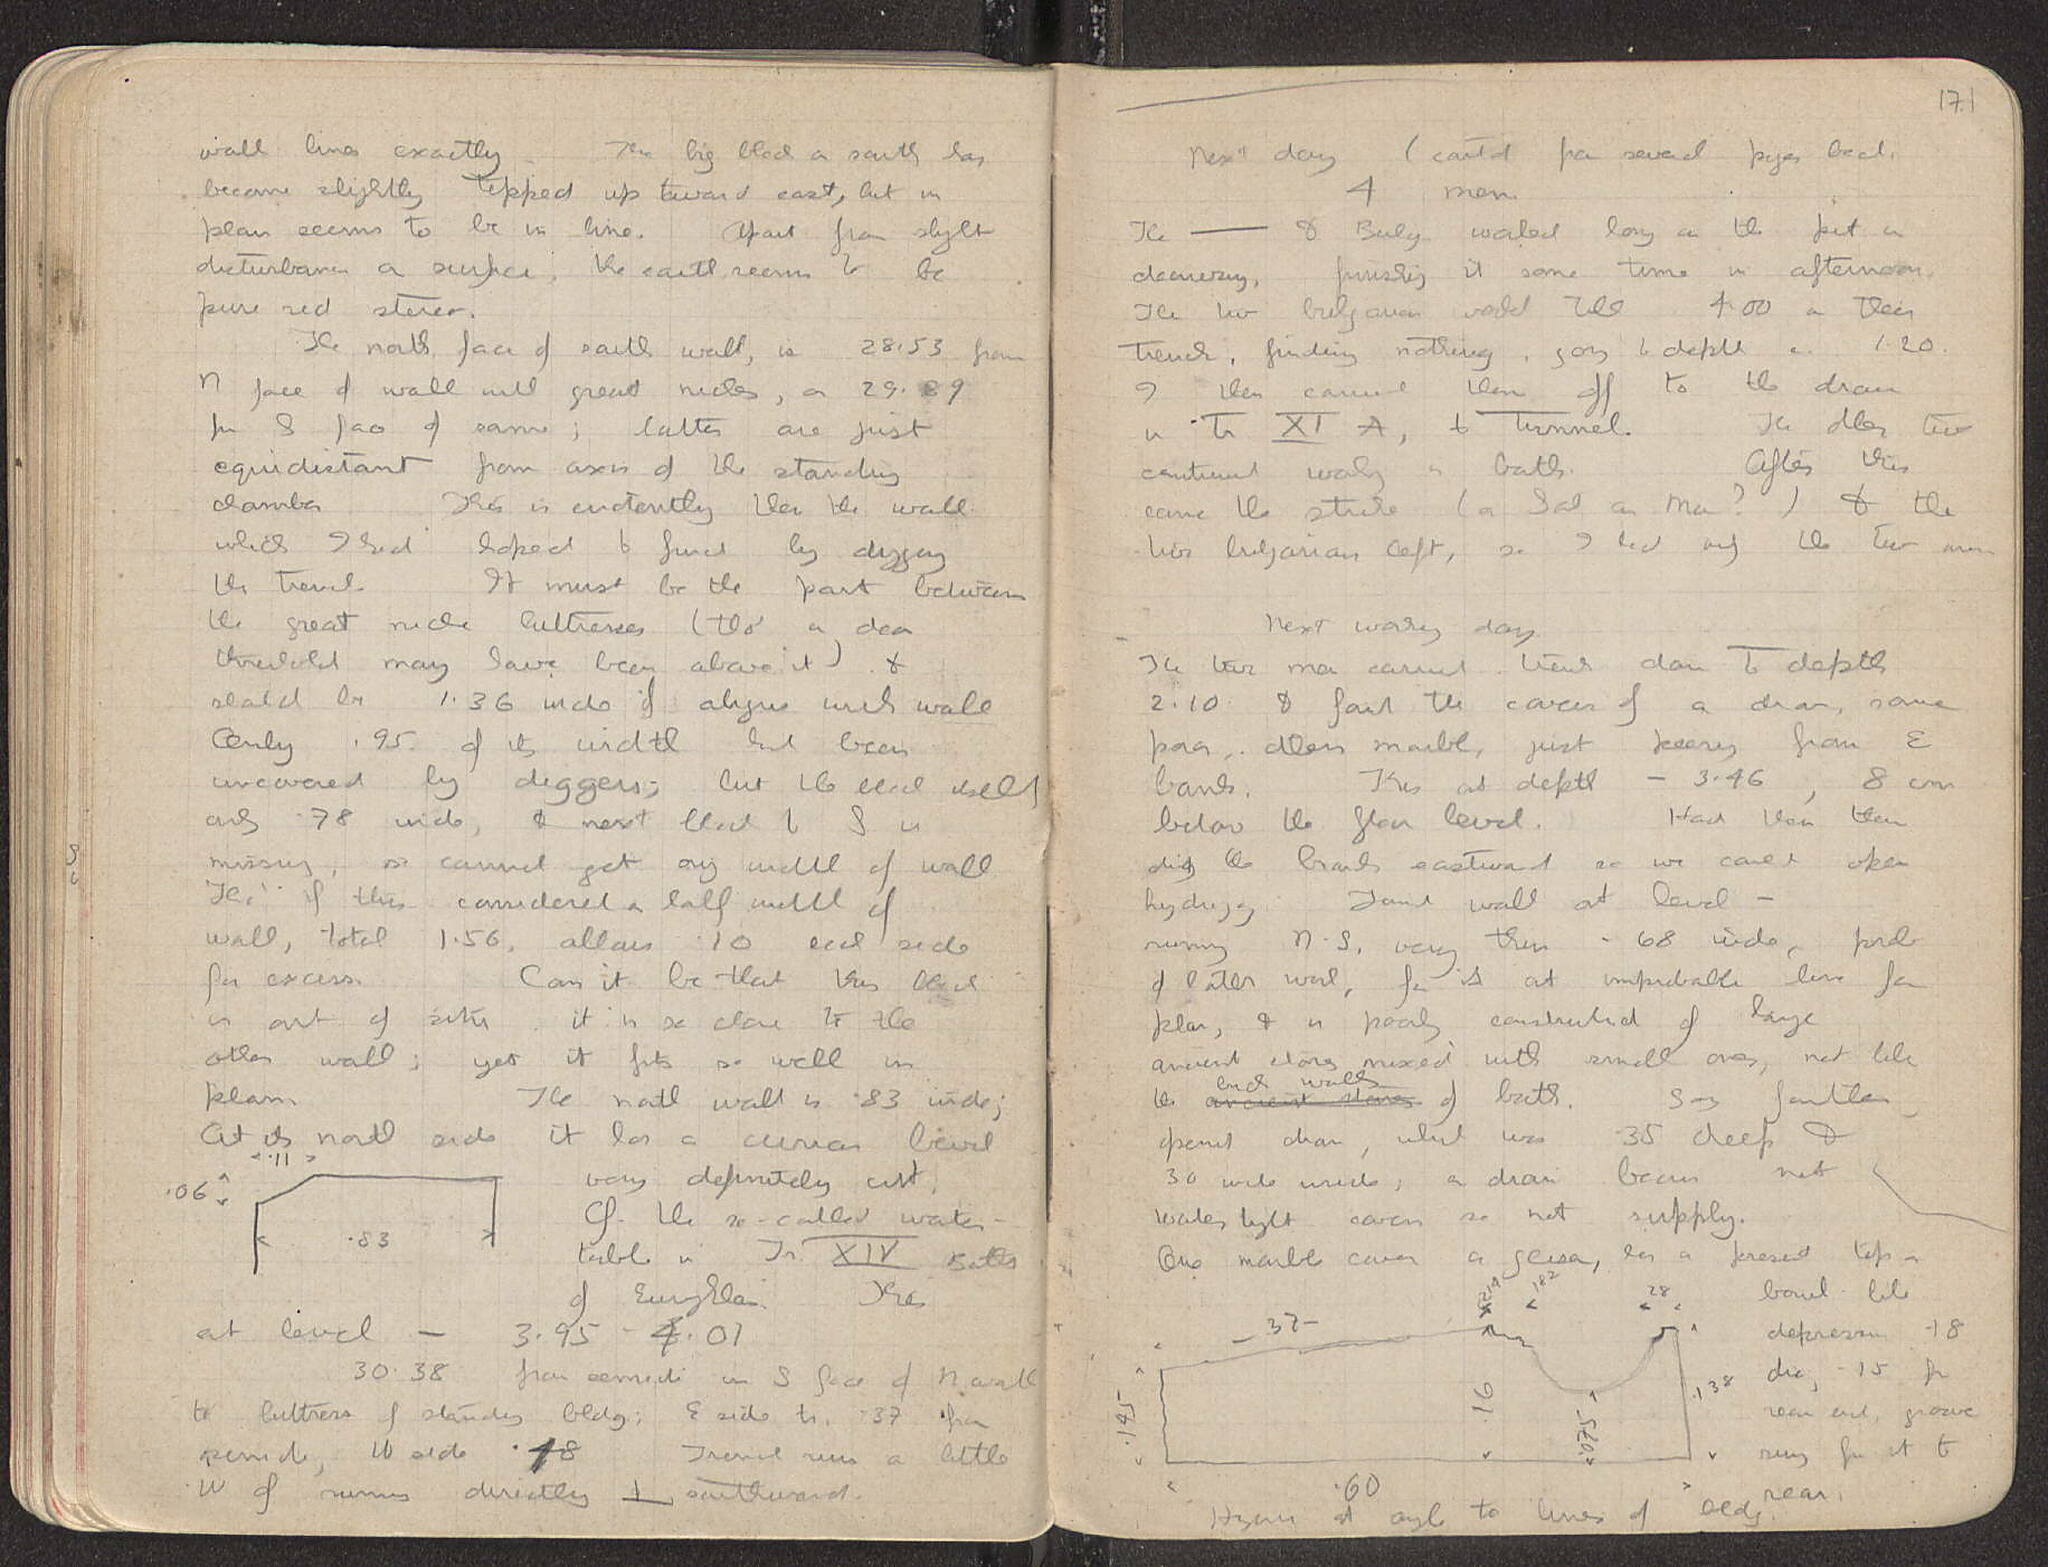 wall lines exactly. The big block on south has
become slightly tipped up toward east, but in
plan seems to be in line. Apart from slight
disturbance on surface, the earth seems to be
pure red stereo.
The north face of south wall, is 28.53 from
N face of wall with great niches, or 29.89
fr S face of same; latter are just
equidistant from axis of the standing
chamber This is evidently then the wall
which I had hoped to find by digging
the trench. It must be the part between
the great niche buttresses (tho' a door
threshold may have been above it) &
should be 1.36 wide if aligns with wall
Only .95 of its width had been
uncovered by diggers; but the block itself
only .78 wide, & next block to S is
missing, so cannot get orig width of wall
if this considered a half width of
wall, total 1.56, allows .10 each side
for excess. Can it be that this block
is out of situ, it is so close to the
other wall; yet it fits so well in
plan. The north wall is .83 wide;
At its north side it has a curious bevel
.11
.06
.83
very definitely cut.
Cf. the so-called water-
table in Tr. XIV Baths
of This
at level - 3.95 - 4.01
30.38 from in S face of N wall
to buttress of standing bldg; E side tr. .37 from
W side .18 Trench runs a little
W of directly ⊥ southward.
171
Next day (cont'd from several pages back.
4 men
The —— & Bulg. worked long on the pit in
deanery, finishing it some time in afternoon.
The two bulgarian worked till 4.00 on their
trench, finding nothing, going to depth 1.20.
I then carried them off to the drain
in Tr XI A, to tunnel. The other two
continued work in bath. After this
came the strike (on Sat or Mon?) & the
two bulgarians left, so I had only the two men
Next working day
The two men carried trench down to depth
2.10 & found the covers of a drain, some
poros, others marble, just from E
bank. This at depth - 3.46, 8 cm
below the floor level. Had them then
dig the bank eastward so we could open
Found wall at level -
running N.S. very thin - .68 wide, prob
of later work, for is at improbable line for
plan, & is poorly constructed of large
ancient stones mixed with small ones, not like
brick walls
the ancient stones of bath. farther
opened drain, which was .35 deep &
30 wide inside; a drain because not
water tight covers so not supply.
One marble cover a geison, has a
bowl like
depression .18
dia, .15 fr
rear end, groove
runs fr it to
rear.
.37
.182
.28
.145
.16
.075
.138
.60
at angle to lines of bldg.